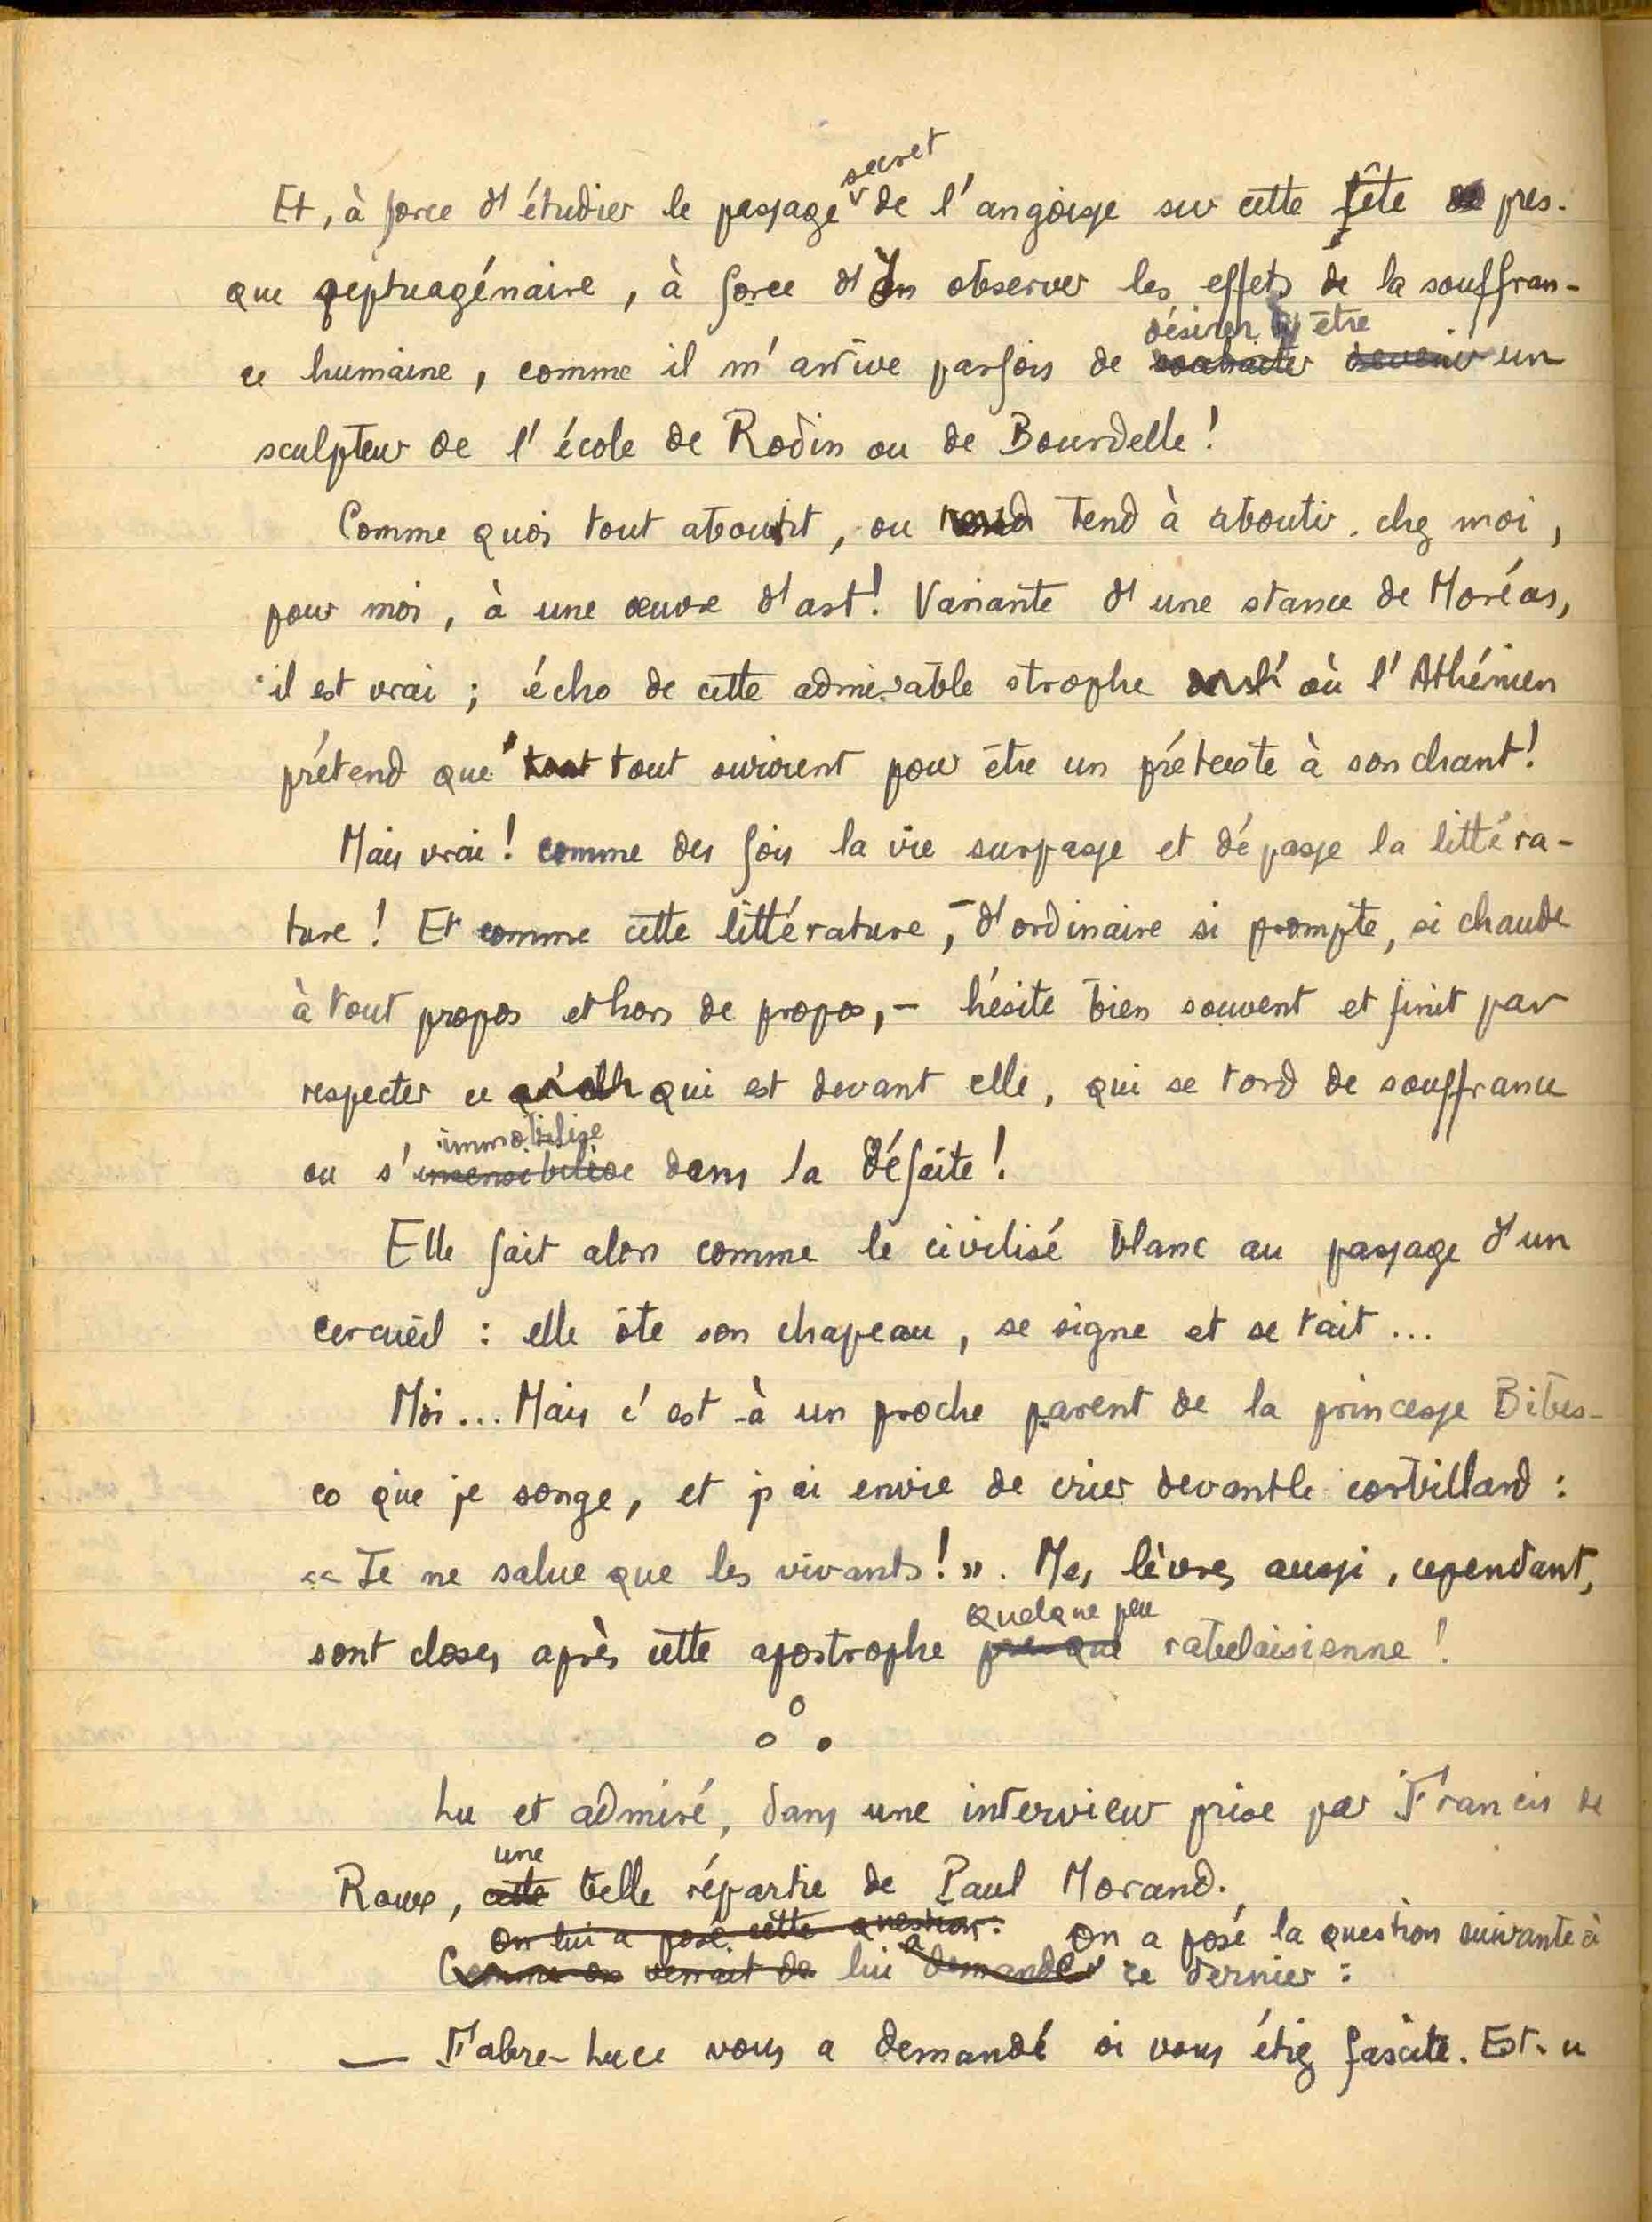 secret
Et, à force d'étudier le passage de l'angoisse sur cette tête pres-
que septuagénaire, à force d'en observer les effets de la souffran-
désirer être
ce humaine, comme il m'arrive parfois de souhaiter devenir un
sculpteur de l'école de Rodin ou de Bourdelle!
Comme quoi tout aboutit, ou tend à aboutir. chez moi,
pour moi, à une œuvre d'art! Variante d'une stance de Moréas,
il est vrai; écho de cette admirable strophe où l'Athénien
prétend que tout tout survient pour être un prétexte à son chant!
Mais vrai! comme des fois la vie surpasse et dépasse la littéra-
ture! Et comme cette littérature, - d'ordinaire si prompte, si chaude
à tout propos et hors de propos, - hésite bien souvent et finit par
respecter ce qu'elle qui est devant elle, qui se tord de souffrance
immobilise
ou s'insensibilise dans la défaite!
Elle fait alors comme le civilisé blanc au passage d'un
cercueil : elle ôte son chapeau, se signe et se tait...
Moi... Mais c'est à un proche parent de la princesse Bibes-
co que je songe, et j'ai envie de crier devant le corbillard :
« Je ne salue que les vivants! ». Mes lèvres aussi, cependant,
quelque peu
sont closes après cette apostrophe presque rabelaisienne!
Lu et admiré, dans une interview prise par Francis de
une
Roux, cette belle répartie de Paul Morand.
On lui a posé cette question: On a posé la question suivante à
Comme on venait de lui a demander ce dernier :
— Fabre-Luce vous a demandé si vous étiez fasciste. Est-ce